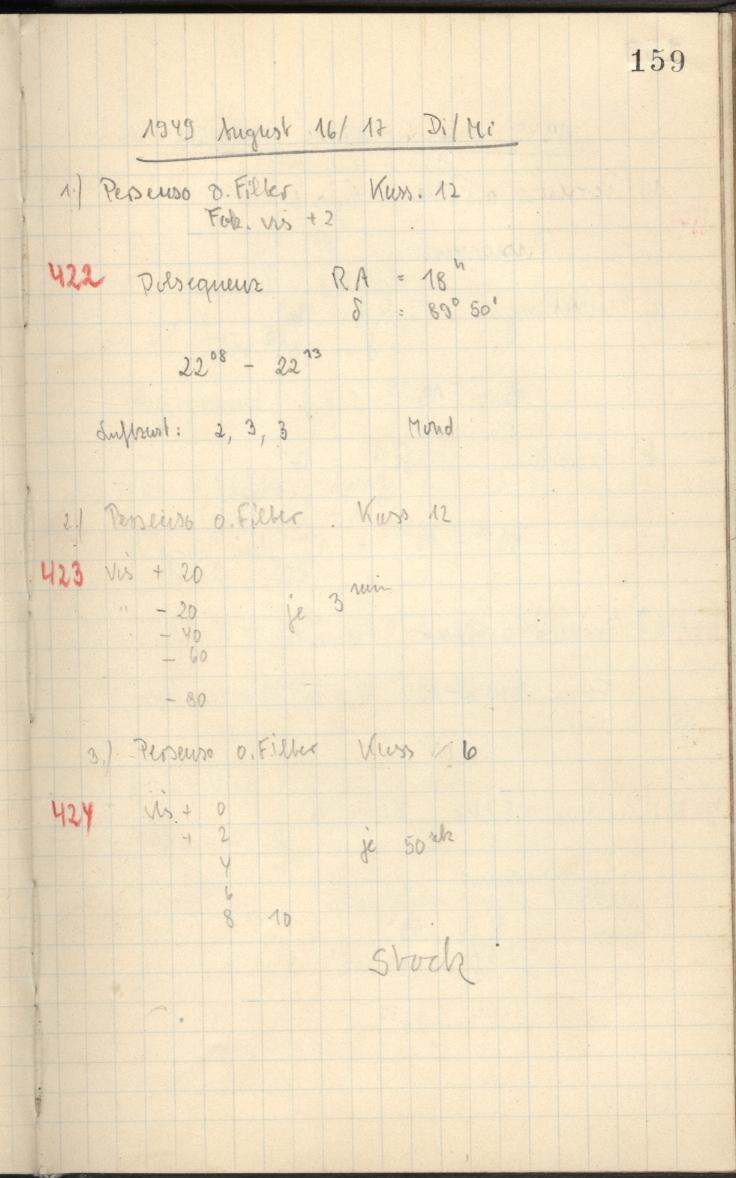 159
1949 August 16/17 Di/Mi
1.) Persenso o. Filter Kass. 12
Fok. vis + 2
422 Polsequenz RA = 18h
δ = 89° 50'
22 08 – 22 13
Luftzust: 2, 3, 3 Mond
2.) Persenso o. Filter. Kass 12
423 vis + 20
" – 20 je 3 min
– 40
– 60
– 80
3.) Persenso o. Filter Kass 6
424 vis + 0
+ 2 je 50 sek
4
6
8 10
Stock